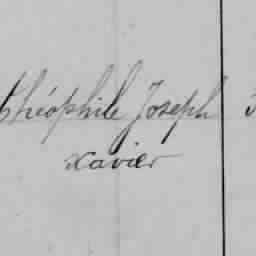 Théophile Joseph
Xavier